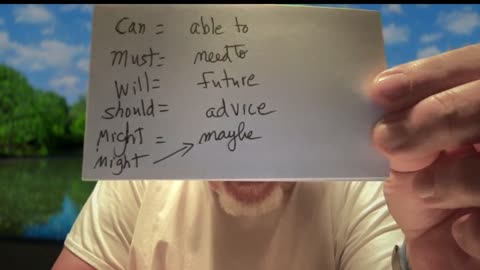 Can = able to
must = need to
will = future
should = advice
might = maybe
might